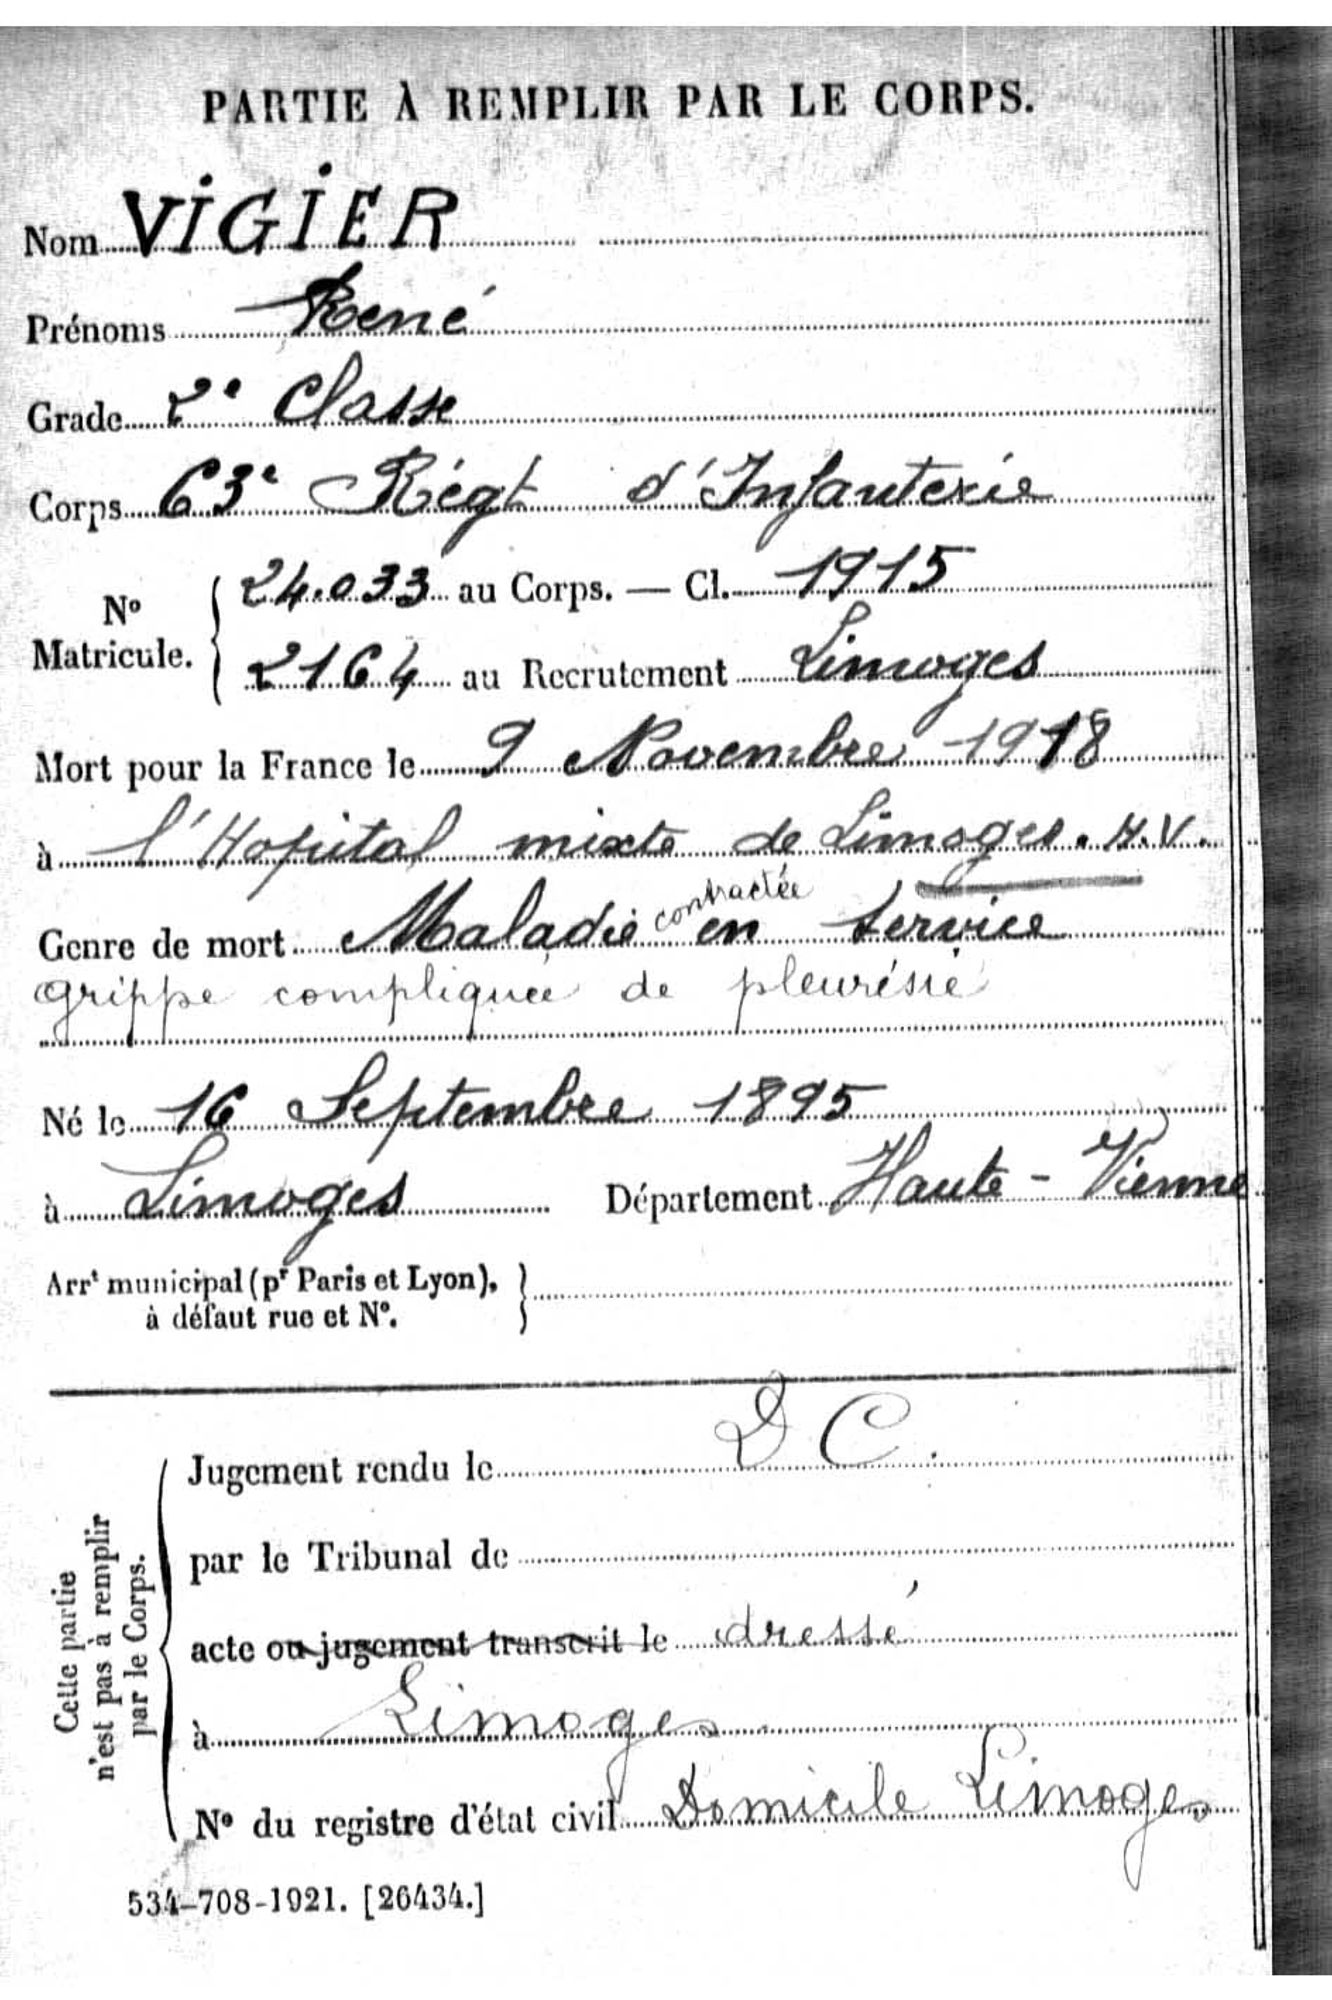 PARTIE À REMPLIR PAR LE CORPS.
Nom VIGIER
Prénoms René
Grade 2e Classe
Corps 63e Régt d'Infanterie
No Matricule. { 24.033 au Corps. — Cl. 1915
2164 au Recrutement Limoges
Mort pour la France le 9 Novembre 1918
à l'Hopital mixte de Limoges. H.V.
contractée
Genre de mort Maladie en service
grippe compliquée de pleurésie
Né le 16 Septembre 1895
à Limoges Département Haute-Vienne
Arrt municipal (pr Paris et Lyon), }
à défaut rue et No.
D C.
Jugement rendu le
par le Tribunal de
acte ou jugement transcrit le dressé
à Limoges
No du registre d'état civil Domicile Limoges
Cette partie
n'est pas à remplir
par le Corps.
534-708-1921. [26434.]